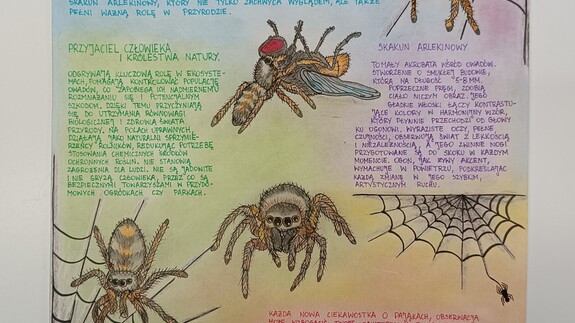 SKAKUN ARLEKINOWY, KTÓRY NIE TYLKO ZACHWYCA WYGLĄDEM, ALE TAKŻE
PEŁNI WAŻNĄ ROLĘ W PRZYRODZIE.
PRZYJACIEL CZŁOWIEKA
I KRÓLESTWA NATURY.
ODGRYWAJĄ KLUCZOWĄ ROLĘ W EKOSYSTE-
MACH, POMAGAJĄ KONTROLOWAĆ POPULACJĘ
OWADÓW, CO ZAPOBIEGA ICH NADMIERNEMU
ROZMNAŻANIU SIĘ I POTENCJALNYM
SZKODOM, DZIĘKI TEMU PRZYCZYNIAJĄ
SIĘ DO UTRZYMANIA RÓWNOWAGI
BIOLOGICZNEJ I ZDROWIA ŚWIATA
PRZYRODY. NA POLACH UPRAWNYCH,
DZIAŁAJĄ JAKO NATURALNI SPRZYMIE-
RZEŃCY ROLNIKÓW, REDUKUJĄC POTRZEBĘ
STOSOWANIA CHEMICZNYCH ŚRODKÓW
OCHRONNYCH ROŚLIN. NIE STANOWIĄ
ZAGROŻENIA DLA LUDZI. NIE SĄ JADOWITE
I NIE GRYZĄ CZŁOWIEKA, PRZEZ CO SĄ
BEZPIECZNYMI TOWARZYSZAMI W PRZYDO-
MOWYCH OGRÓDKACH CZY PARKACH.
SKAKUN ARLEKINOWY
TO MAŁY AKROBATA WŚRÓD OWADÓW.
STWORZENIE O SMUKŁEJ BUDOWIE,
KTÓRA NA DŁUGOŚĆ 5-8MM.
POPRZECZNE PRĘGI, ZDOBIĄ
CAŁO NICZYM OBRAZ. JEGO
GŁADKIE WŁOSKI ŁĄCZY KONTRASTU-
JĄCE KOLORY W HARMONIJNY WZÓR,
KTÓRY PŁYNNIE PRZECHODZI OD GŁOWY
KU OGONOWI. WYRAZISTE OCZY, PEŁNE
CZUJNOŚCI, OBSERWUJĄ ŚWIAT Z LEKKOŚCIĄ
I NIEZALEŻNOŚCIĄ, A JEGO ZWINNE NOGI
PRZYGOTOWANE SĄ DO SKOKU W KAŻDYM
MOMENCIE. OGON, JAK ŻYWY AKCENT,
WYMACHUJE W POWIETRZU, PODKREŚLAJĄC
KAŻDĄ ZMIANĘ W JEGO SZYBKIM,
ARTYSTYCZNYM RUCHU.
KAŻDA NOWA CIEKAWOSTKA O PAJĄKACH, OBSERWACJA
MOŻE WZBOGACIĆ